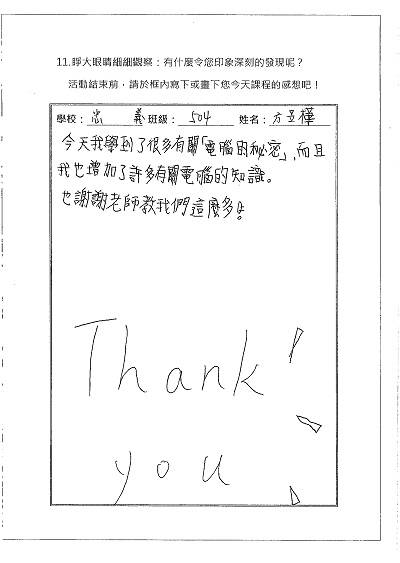 11.睜大眼睛細細觀察：有什麼令您印象深刻的發現呢？
活動結束前，請於框內寫下或畫下您今天課程的感想吧！
學校： 忠 義 班級： 504 姓名： 方 樺
今天我學到了很多有關「電腦的秘密」,而且
我也增加了許多有關電腦的知識。
也謝謝老師教我們這麼多!
Thank!
you